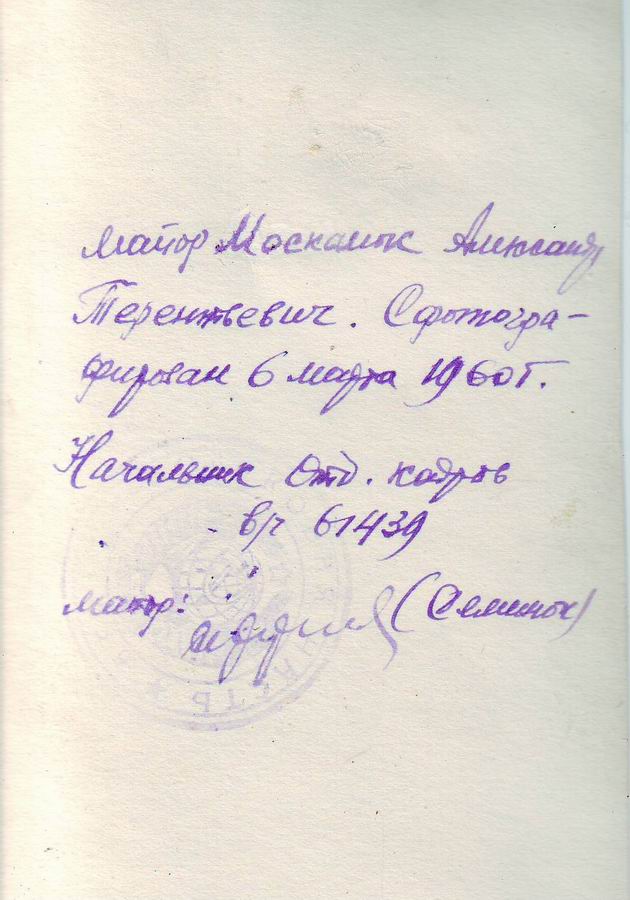 майор Москалюк Александр
Терентьевич. Сфотогра-
фирован 6 марта 1960 г.
Начальник Отд. кадров
в/ч 61439
майор: